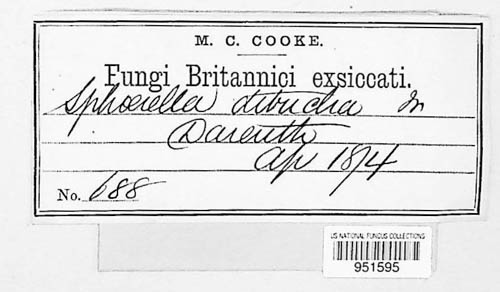 M. C. COOKE.
Fungi Britannici exsiccati.
Sphærella
Darenth
Ap 1874
No. 688
US NATIONAL FUNGUS COLLECTIONS
951595